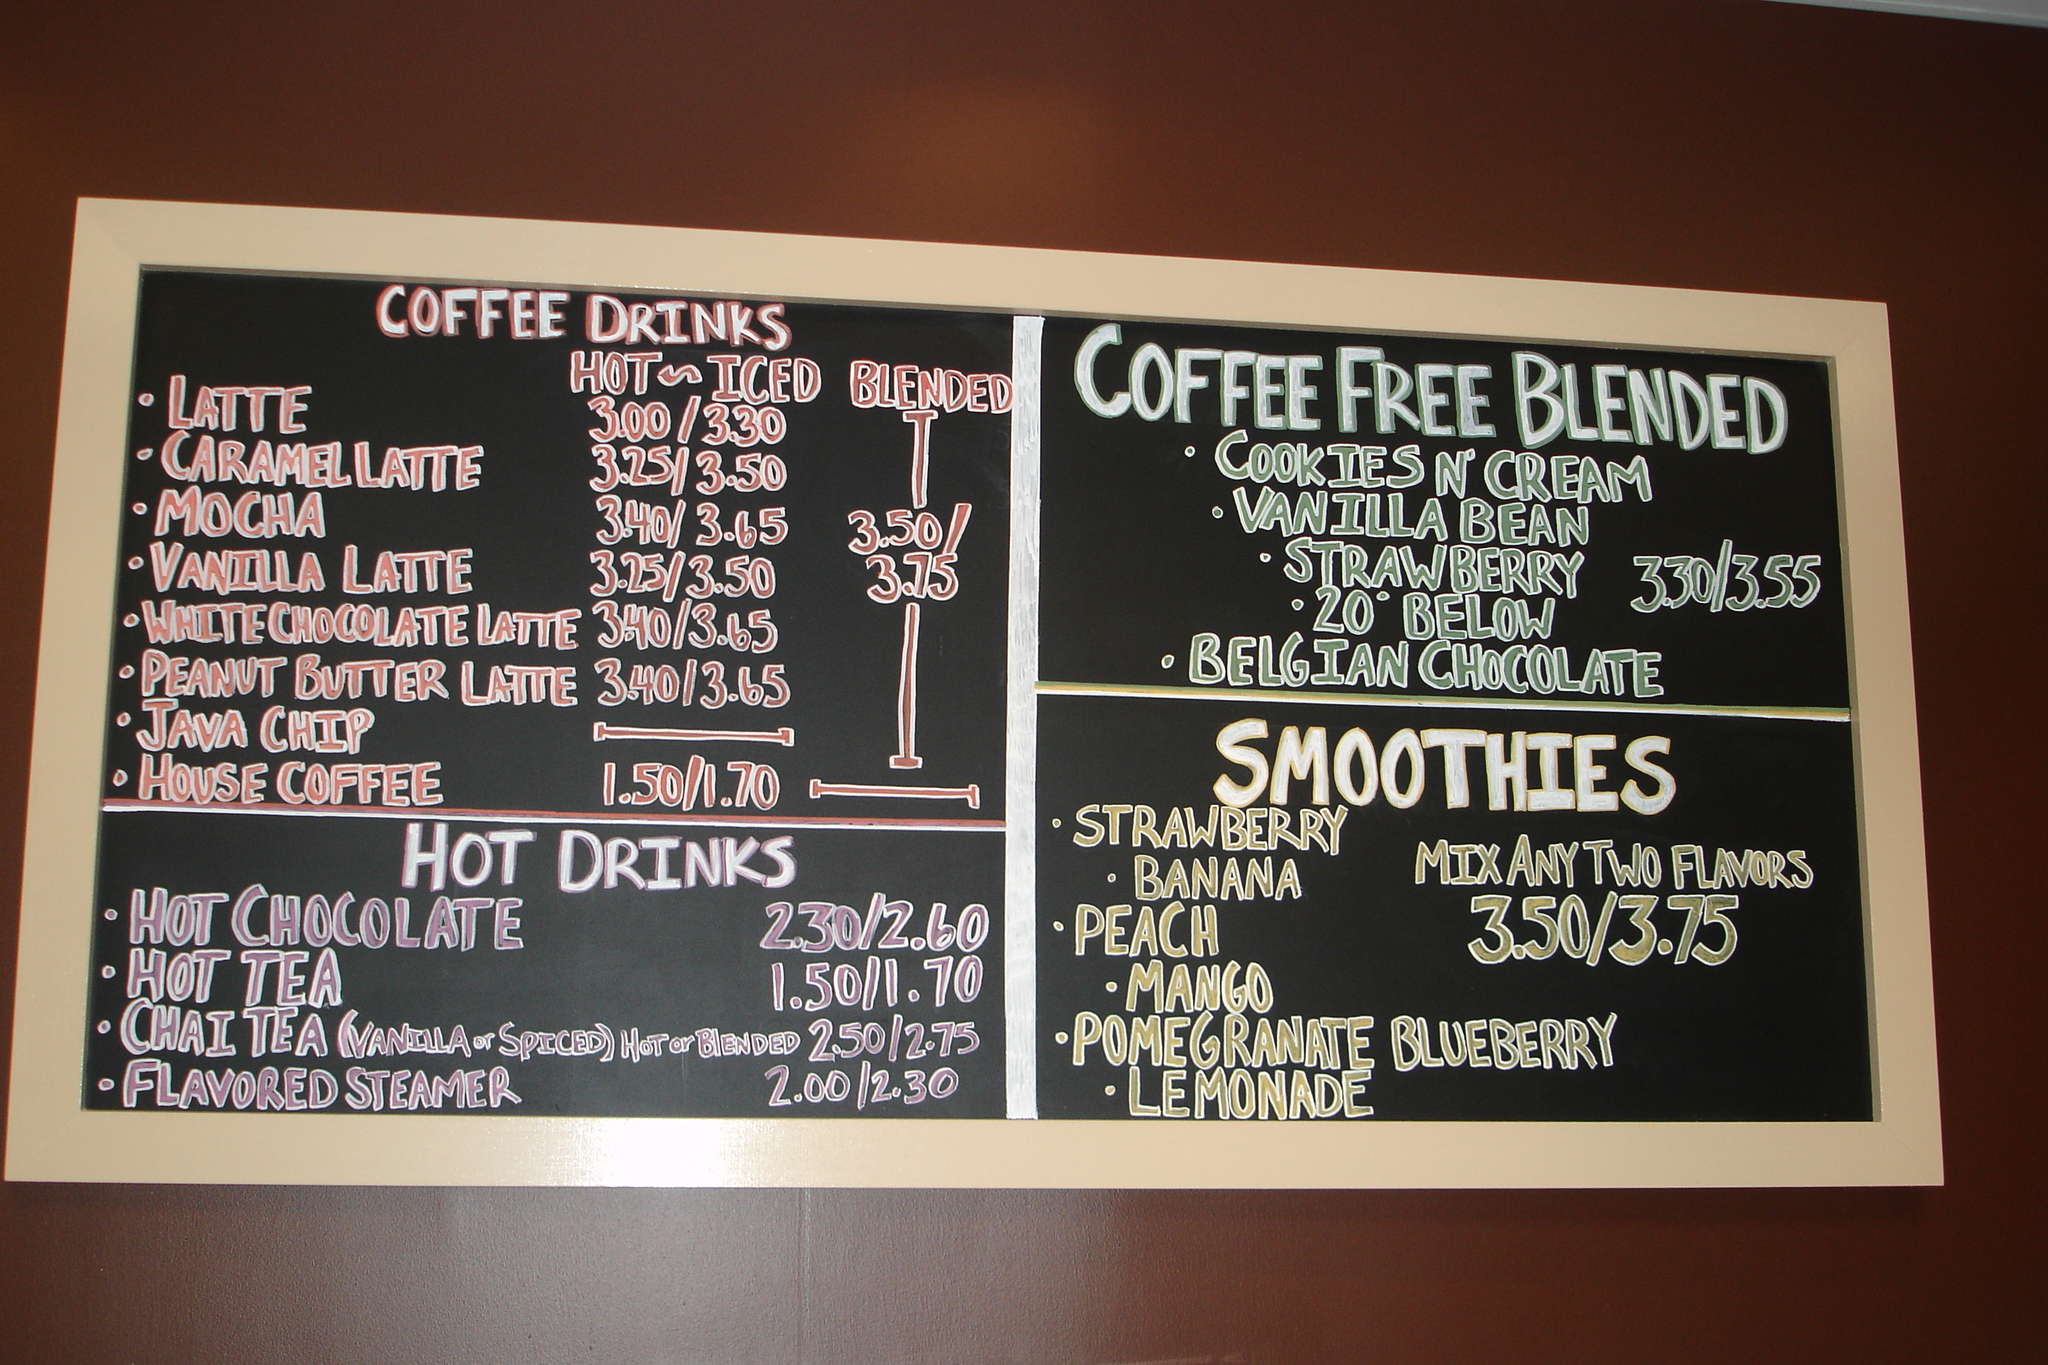 COFFEE DRINKS
HOT ~ ICED BLENDED
• LATTE 3.00/3.30
• CARAMEL LATTE 3.25/3.50
• MOCHA 3.40/3.65 3.50/
• VANILLA LATTE 3.25/3.50 3.75
• WHITE CHOCOLATE LATTE 3.40/3.65
• PEANUT BUTTER LATTE 3.40/3.65
• JAVA CHIP
• HOUSE COFFEE 1.50/1.70
HOT DRINKS
• HOT CHOCOLATE 2.30/2.60
• HOT TEA 1.50/1.70
• CHAI TEA (VANILLA or SPICED) HOT or BLENDED 2.50/2.75
• FLAVORED STEAMER 2.00/2.30
COFFEE FREE BLENDED
• COOKIES N' CREAM
• VANILLA BEAN
• STRAWBERRY 3.30/3.55
• 20° BELOW
• BELGIAN CHOCOLATE
SMOOTHIES
• STRAWBERRY
• BANANA MIX ANY TWO FLAVORS
• PEACH 3.50/3.75
• MANGO
• POMEGRANATE BLUEBERRY
• LEMONADE